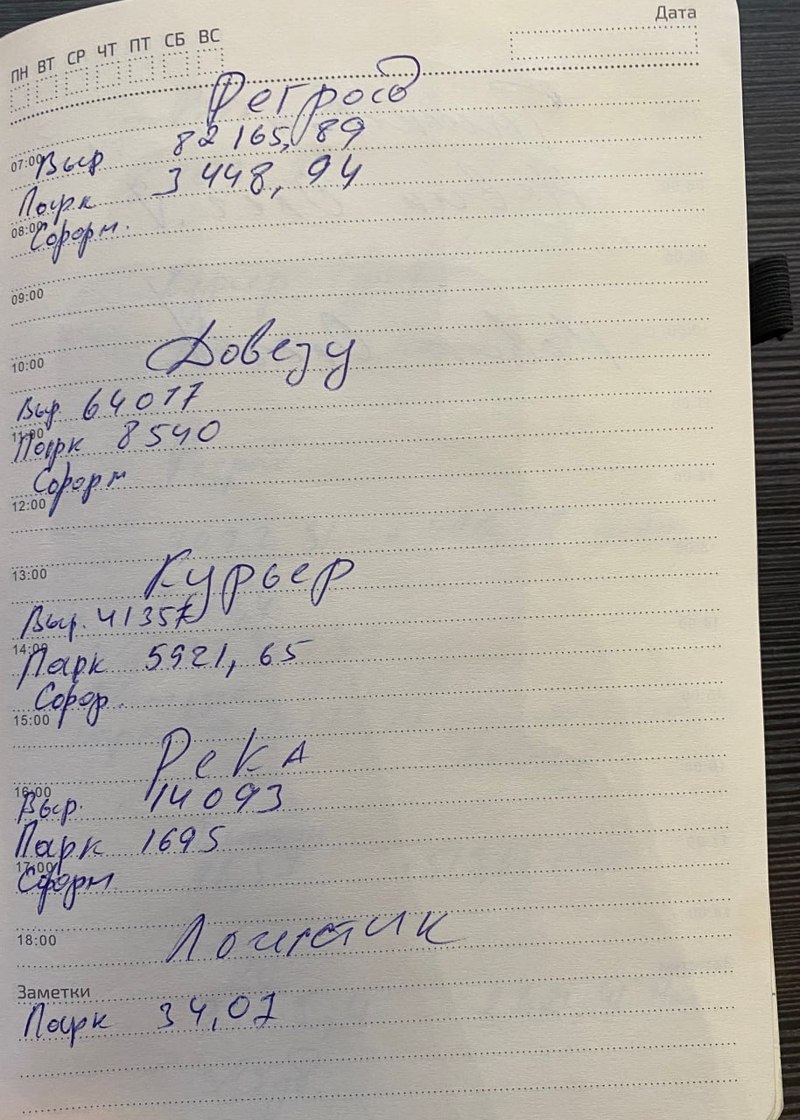 Дата
ПН ВТ СР ЧТ ПТ СБ ВС
Регрос
07:00
Выр 82165,89
Парк 3448,94
08:00
Сформ.
09:00
10:00
Довезу
Выр. 64077
11:00
Парк 8540
Сформ
12:00
13:00
Курьер
Выр. 41357
14:00
Парк 5921,65
Сфор.
15:00
Река
16:00
Выр. 14093
Парк 1695
17:00
Сформ
18:00
Логистик
Заметки
Парк 34,07